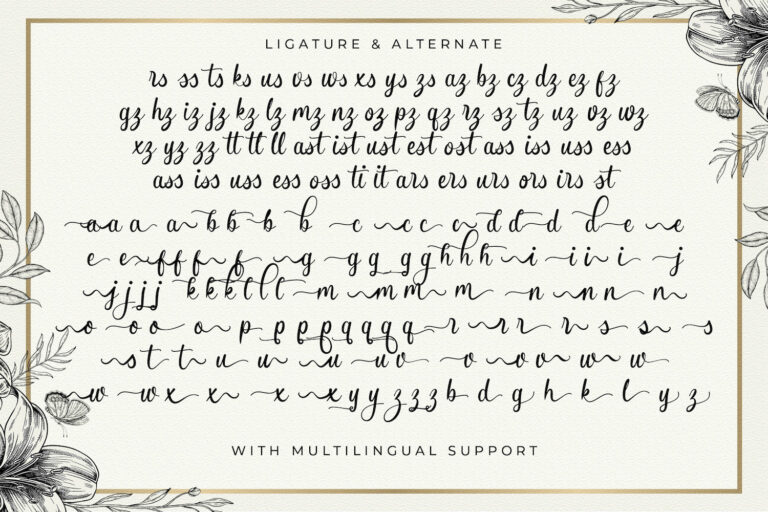 LIGATURE & ALTERNATE
rs ss ts ks us os ws xs ys zs az bz cz dz ez fz
gz hz iz jz kz lz mz nz oz pz qz rz sz tz uz oz wz
xz yz zz tt tt ll ast ist ust est ost ass iss uss ess
ass iss uss ess oss ti it ars ers urs ors irs st
a a a a b b b b c c c c d d d d e e
e e f f f f g g g g h h h i i i i j
j j j j k k k l l l m m m m n n n n
o o o o p p p p q q q r r r r s s s
s t t u u u u v o o o o w w
w w x x x x y y z z z b d g h k l y z
WITH MULTILINGUAL SUPPORT